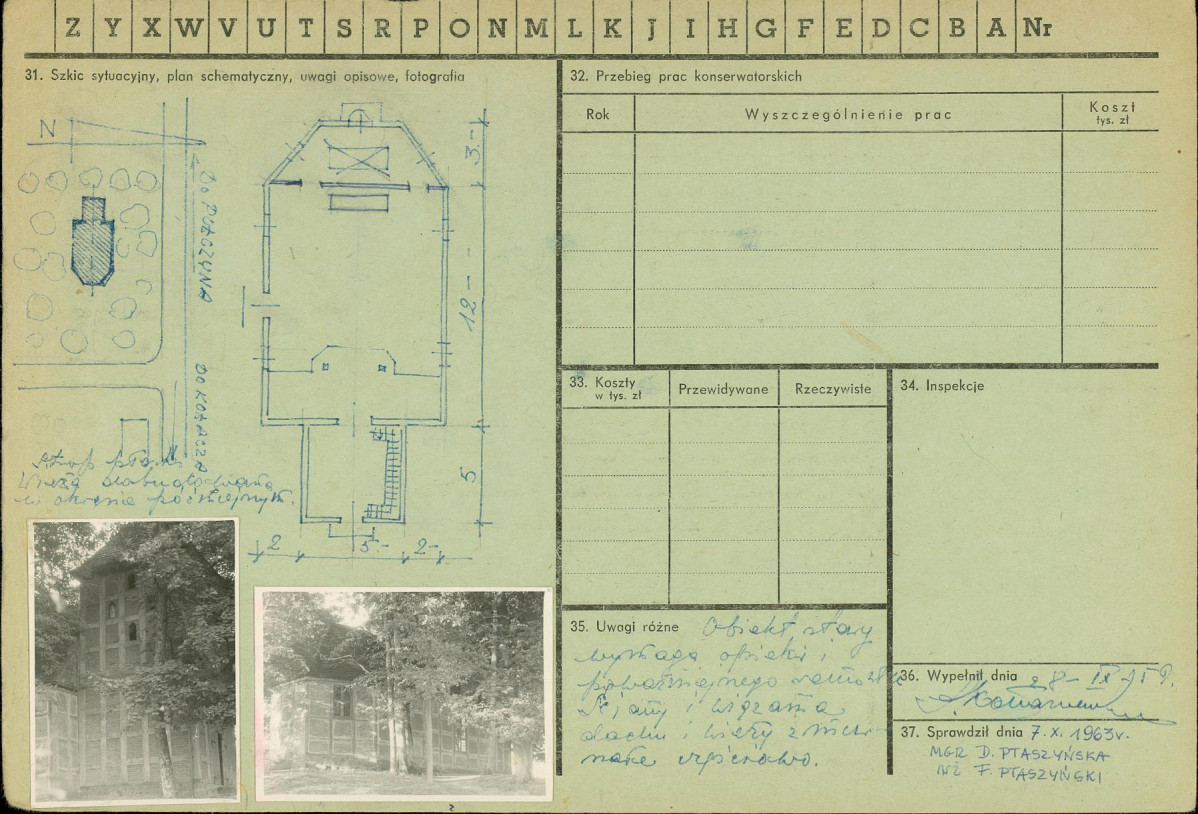 Z Y X W V U T S R P O N M L K J I H G F E D C B A Nr
31. Szkic sytuacyjny, plan schematyczny, uwagi opisowe, fotografia
N
DO POŁCZYNA
DO KOŁACZA
3.-
12.-
5
2 5.- 2-
Strop płaski
Wieża
w okresie późniejszym.
32. Przebieg prac konserwatorskich
Rok
Wyszczególnienie prac
Koszt
tys. zł
33. Koszty
w tys. zł
Przewidywane
Rzeczywiste
34. Inspekcje
35. Uwagi różne
Obiekt stary
wymaga opieki i
poważniejnego remontu
Ściany i wiązania
dachu i wieży
częściowo.
36. Wypełnił dnia
37. Sprawdził dnia 7.X.1963r.
MGR D. PTASZYŃSKA
INŻ F. PTASZYŃSKI